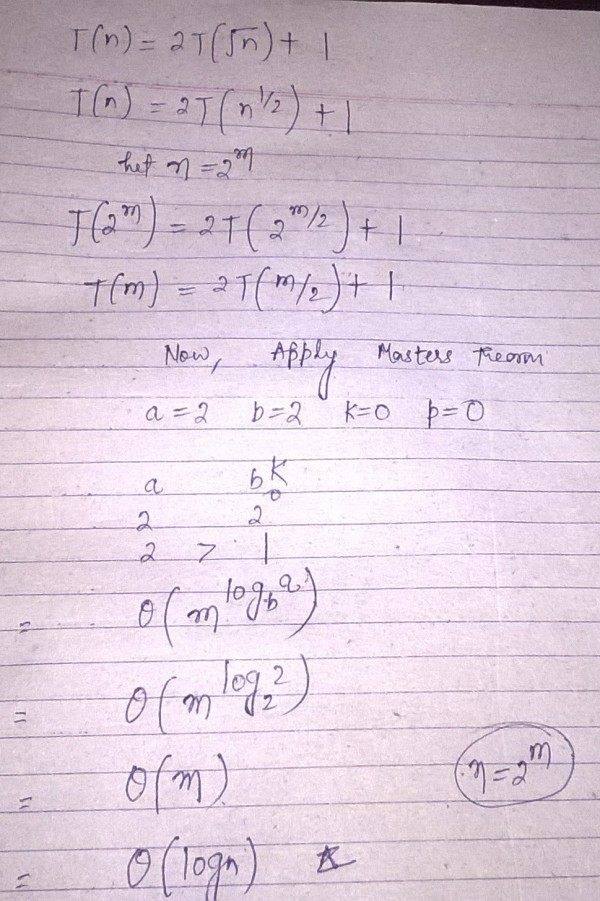 T(n) = 2T(√n) + 1
T(n) = 2T(n^1/2) + 1
let n = 2^m
T(2^m) = 2T(2^m/2) + 1
T(m) = 2T(m/2) + 1
Now, Apply Masters Theorm
a = 2 b = 2 k = 0 p = 0
a b^K
2 2^0
2 > 1
= θ(m^log_b a)
= θ(m^log_2 2)
= θ(m) n = 2^m
= θ(logn)